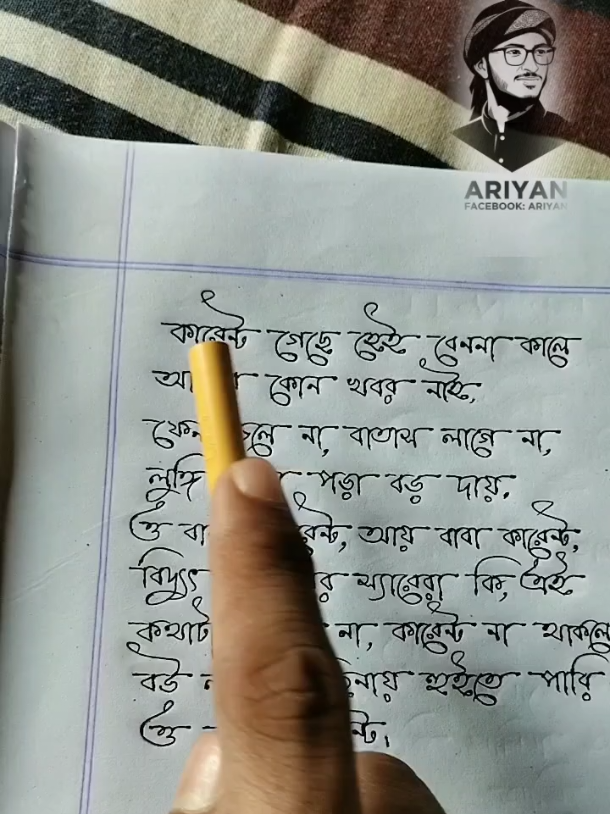 ARIYAN
FACEBOOK: ARIYAN
কারেন্ট গেছে হেই বেননা কালে
কোন খবর নাই,
না, বাতাস লাগে না,
লুঙ্গি পড়া বড় দায়.
ও বা রেন্ট, আয় বাবা কারেন্ট,
বিদ্যুৎ র স্যারেরা কি, এই
কথাট না, কারেন্ট না থাকলে
বউ ন ছিনায় হুইতে পারি
ও ন্ট।